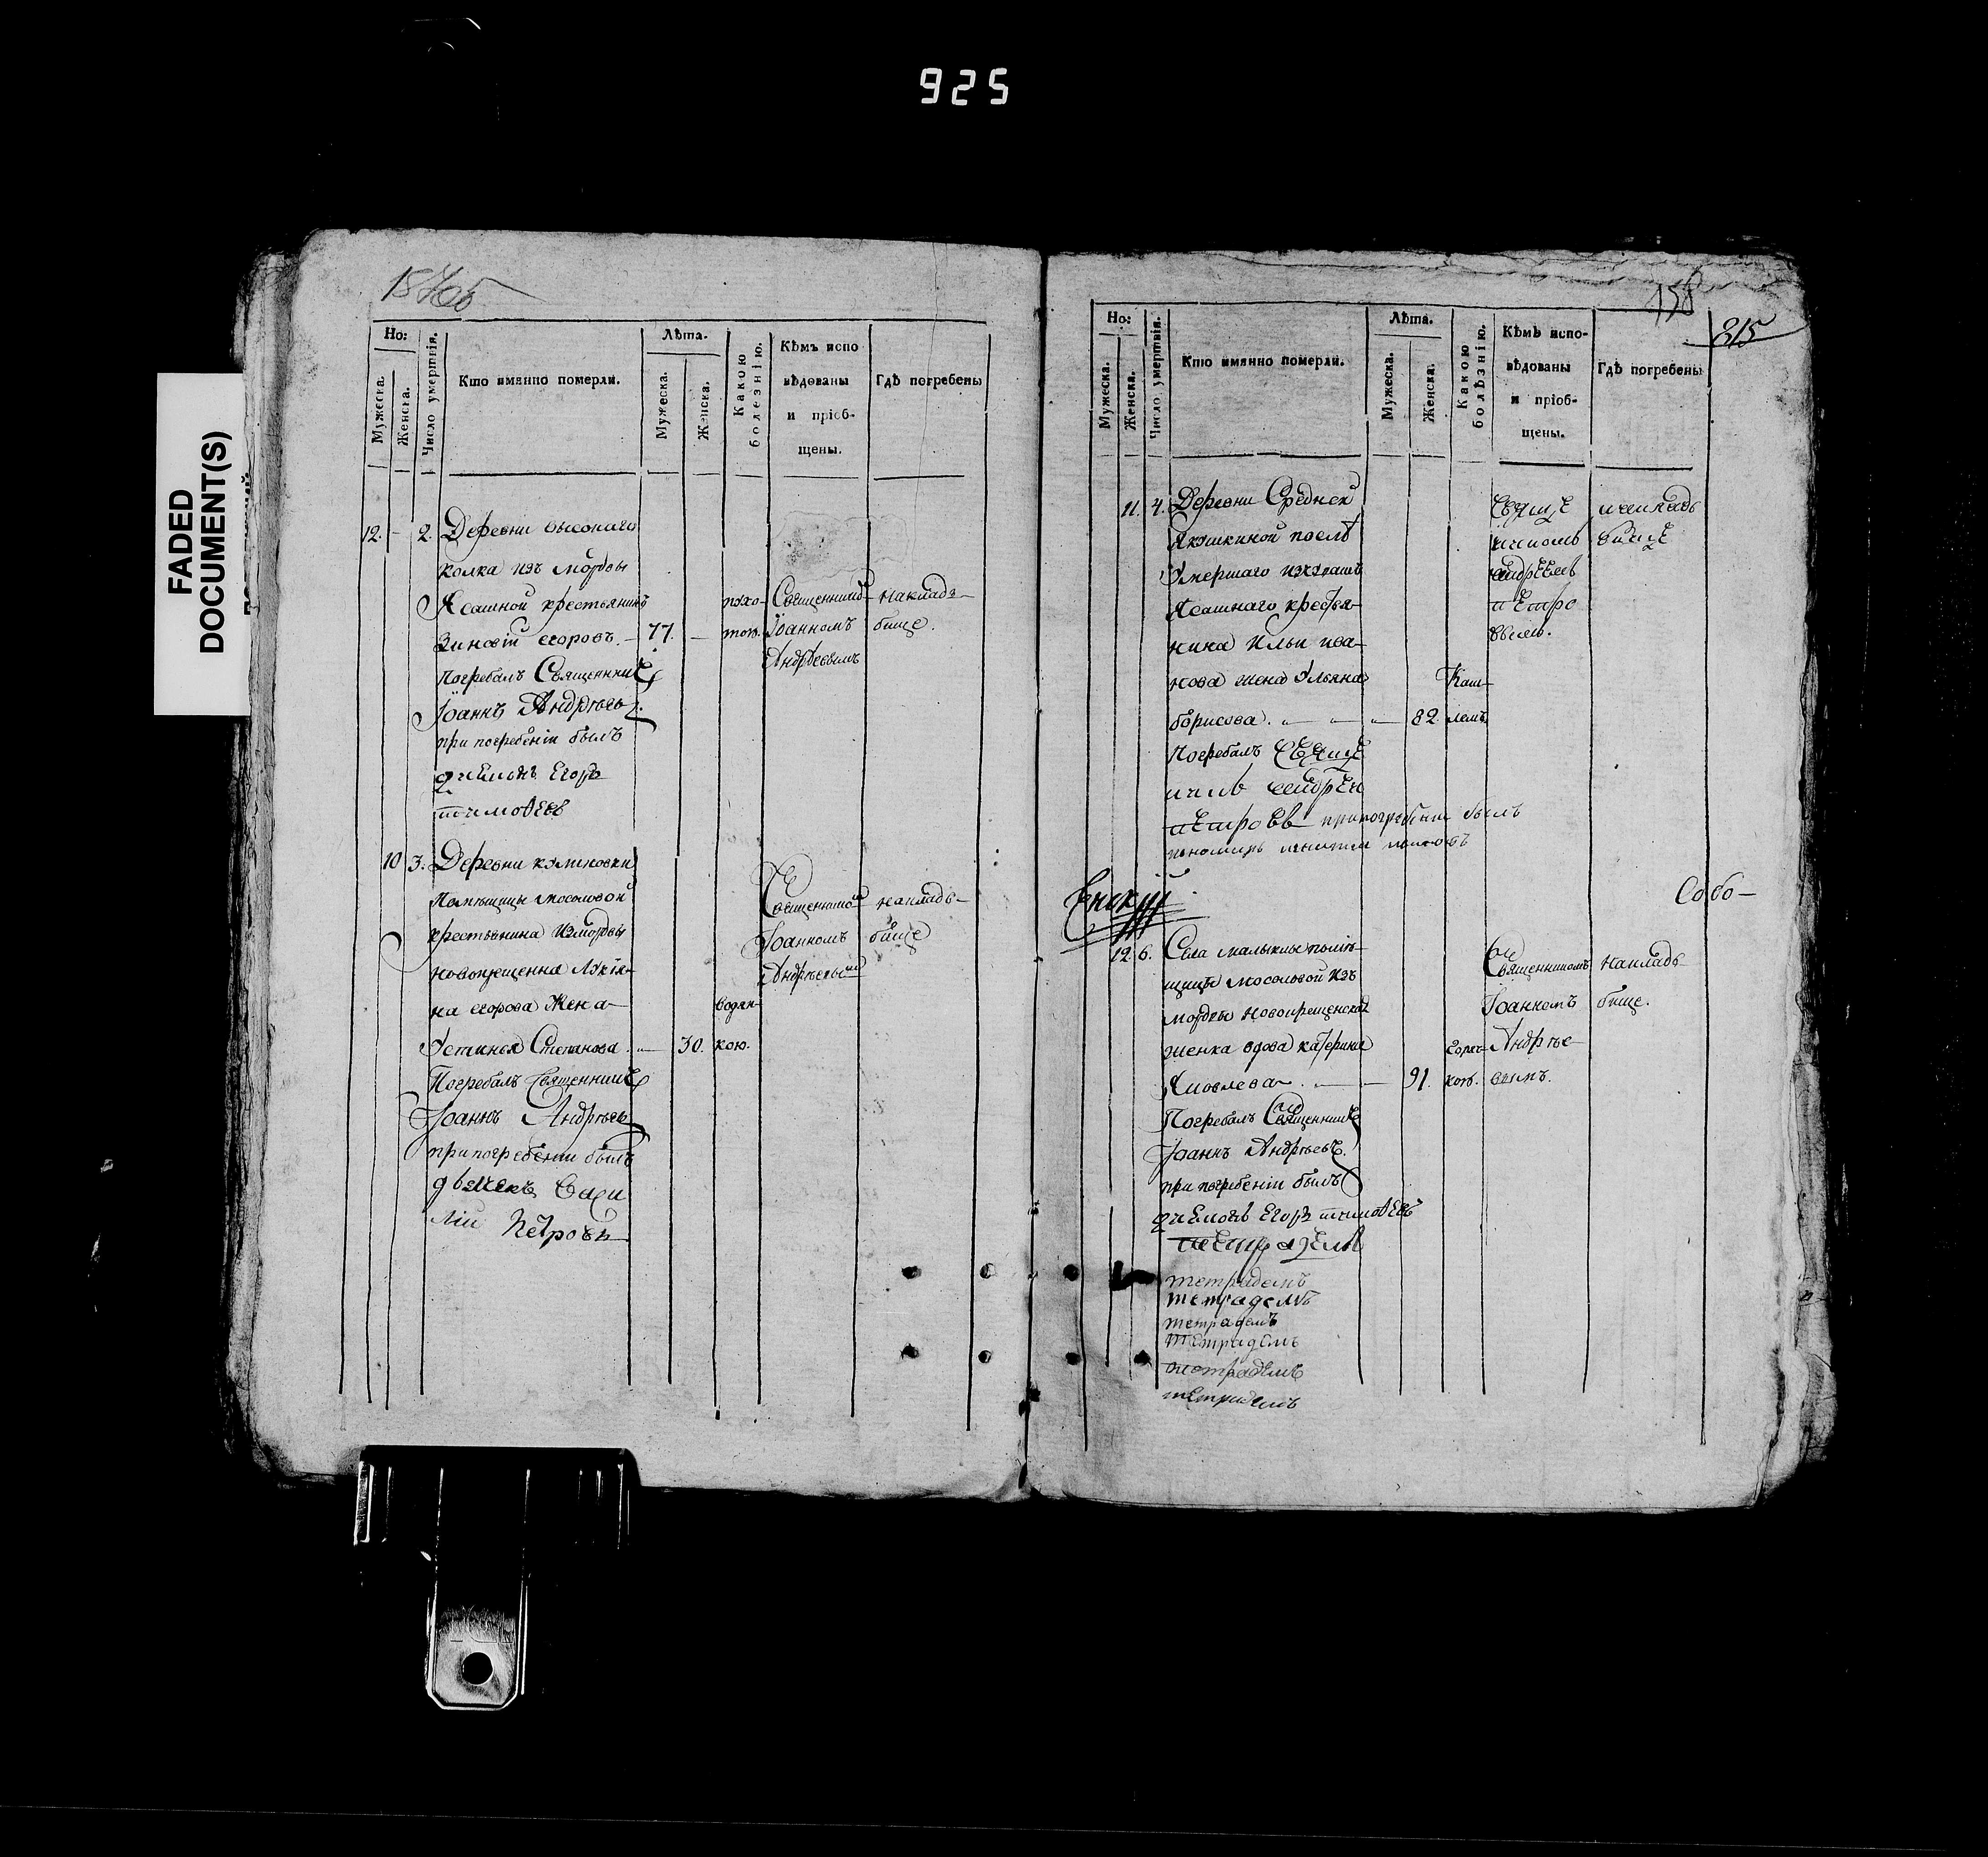 925
FADED
DOCUMENT(S)
157об
Но:
Мужеска.
Женска.
Число умертвія.
Кто имянно померли.
Лѣта.
Мужеска.
Женска.
Какою
болезнію.
Кѣмъ испо
вѣдованы
и пріоб-
щены.
Гдѣ погребены
12. - 2. Деревни высокаго
колка изъ мордвы
Ясашной крестьянинъ
Зиновій егоровъ. 77.
погребалъ Священникъ
Іоаннъ Андрѣевъ.
при погребеніи былъ
Егоръ
тимоѳеев
Священнико
Іоанномъ
Андрѣевымъ
на кладъ-
бище.
10 3. Деревни
Помѣщицы мосоловой
крестьянина измордвы
новокрещенна Лукія-
на егорова Жена
Устинья Степанова. 30.
водян-
кою.
Погребалъ Священникъ
Іоаннъ Андрѣевъ
при погребеніи былъ
дьячекъ Васи
лій Петровъ
Священником
Іоанномъ
Андрѣевым
на кладъ-
бище
158
215
Но:
Мужеска.
Женска.
Число умертвія.
Кто имянно померли.
Лѣта.
Мужеска.
Женска.
Какою
болѣзнію.
Кѣмъ испо-
вѣдованы
и пріоб-
щены.
Гдѣ погребены
11. 4. Деревни Средней
Якушкиной послѣ
Умершаго
Ясашнаго крестья-
нина Ильи ива-
нова жена Ульяна
борисова. 82.
Каш-
лемъ
Погребалъ Свяще
никъ Андрей
Петровъ при погребении былъ
пономарь
Свяще
ником
Андреем
Петро
вым.
на кладь
бище
Собо-
12 6. Села малыклы помѣ-
щицы мосоловой изъ
мордвы новокрещенская
женка вдова катерина
Яковлева. 91.
Погребалъ Священникъ
Іоаннъ Андрѣевъ.
при погребеніи былъ
Егоръ тимоѳеевъ
Священникомъ
Іоанномъ
Андрѣе-
вымъ.
на кладъ-
бище.
тетрадемъ
тетрадемъ
тетрадемъ
тетрадемъ
тетрадемъ
тетрадемъ
тетрадемъ